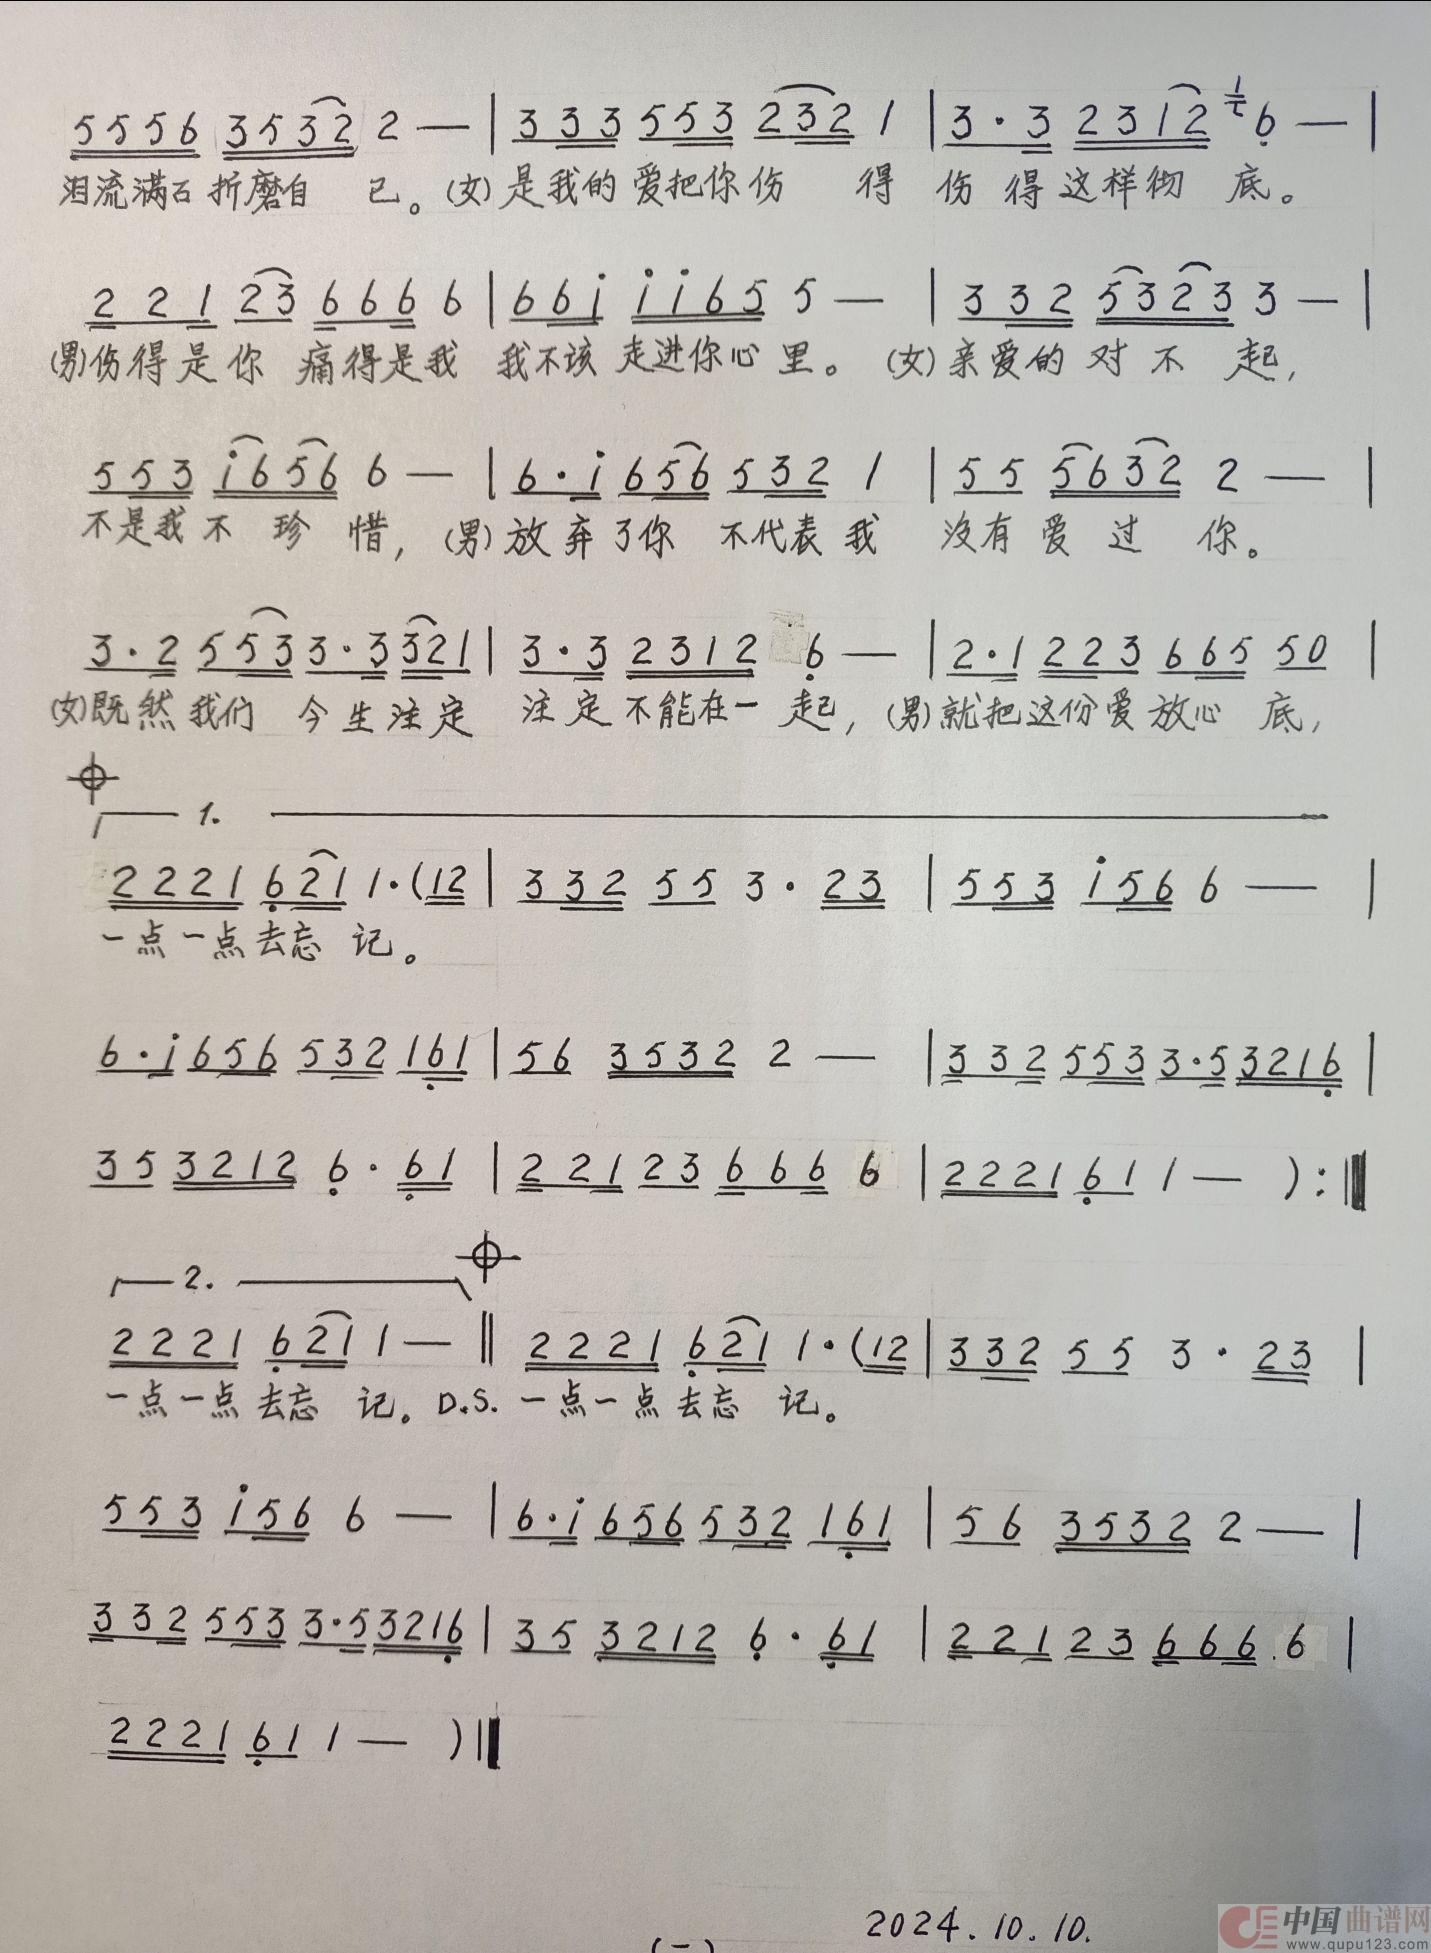 5 5 5 6 3 5 3 2 2 — | 3 3 3 5 5 3 2 3 2 1 | 3 · 3 2 3 1 2 1 6 — |
泪流满面折磨自 己。(女)是我的爱把你伤 得 伤 得这样彻 底。
2 2 1 2 3 6 6 6 6 | 6 6 i i i 6 5 5 — | 3 3 2 5 3 2 3 3 — |
(男)伤得是你 痛得是我 我不该 走进你心里。(女)亲爱的 对 不 起,
5 5 3 i 6 5 6 6 — | 6 · i 6 5 6 5 3 2 1 | 5 5 5 6 3 2 2 — |
不是我不 珍 惜,(男)放弃了你 不代表我 没有 爱 过 你。
3 · 2 5 5 3 3 · 3 3 2 1 | 3 · 3 2 3 1 2 6 — | 2 · 1 2 2 3 6 6 5 5 0 |
(女)既然我们 今生注定 注定不能在一 起,(男)就把这份爱放心 底,
1.
2 2 2 1 6 2 1 1 · (1 2 | 3 3 2 5 5 3 · 2 3 | 5 5 3 i 5 6 6 — |
一点一点去忘 记。
6 · i 6 5 6 5 3 2 1 6 1 | 5 6 3 5 3 2 2 — | 3 3 2 5 5 3 3 · 5 3 2 1 6 |
3 5 3 2 1 2 6 · 6 1 | 2 2 1 2 3 6 6 6 6 | 2 2 2 1 6 1 1 — ) :‖
2.
2 2 2 1 6 2 1 1 — ‖ 2 2 2 1 6 2 1 1 · (1 2 | 3 3 2 5 5 3 · 2 3 |
一点一点去忘 记。D.S. 一点一点去忘 记。
5 5 3 i 5 6 6 — | 6 · i 6 5 6 5 3 2 1 6 1 | 5 6 3 5 3 2 2 — |
3 3 2 5 5 3 3 · 5 3 2 1 6 | 3 5 3 2 1 2 6 · 6 1 | 2 2 1 2 3 6 6 6 6 |
2 2 2 1 6 1 1 — ) ‖
2024.10.10.
(二)
中国曲谱网
www.qupu123.com